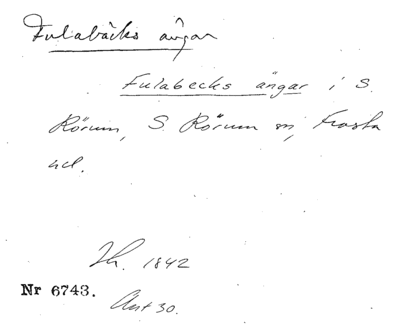 Fulabäcks ängar
Fulabecks ängar i S.
Rörum, S. Rörum sn, Frosta
hd.
Th. 1842
Nr 6743.
Ant 30.